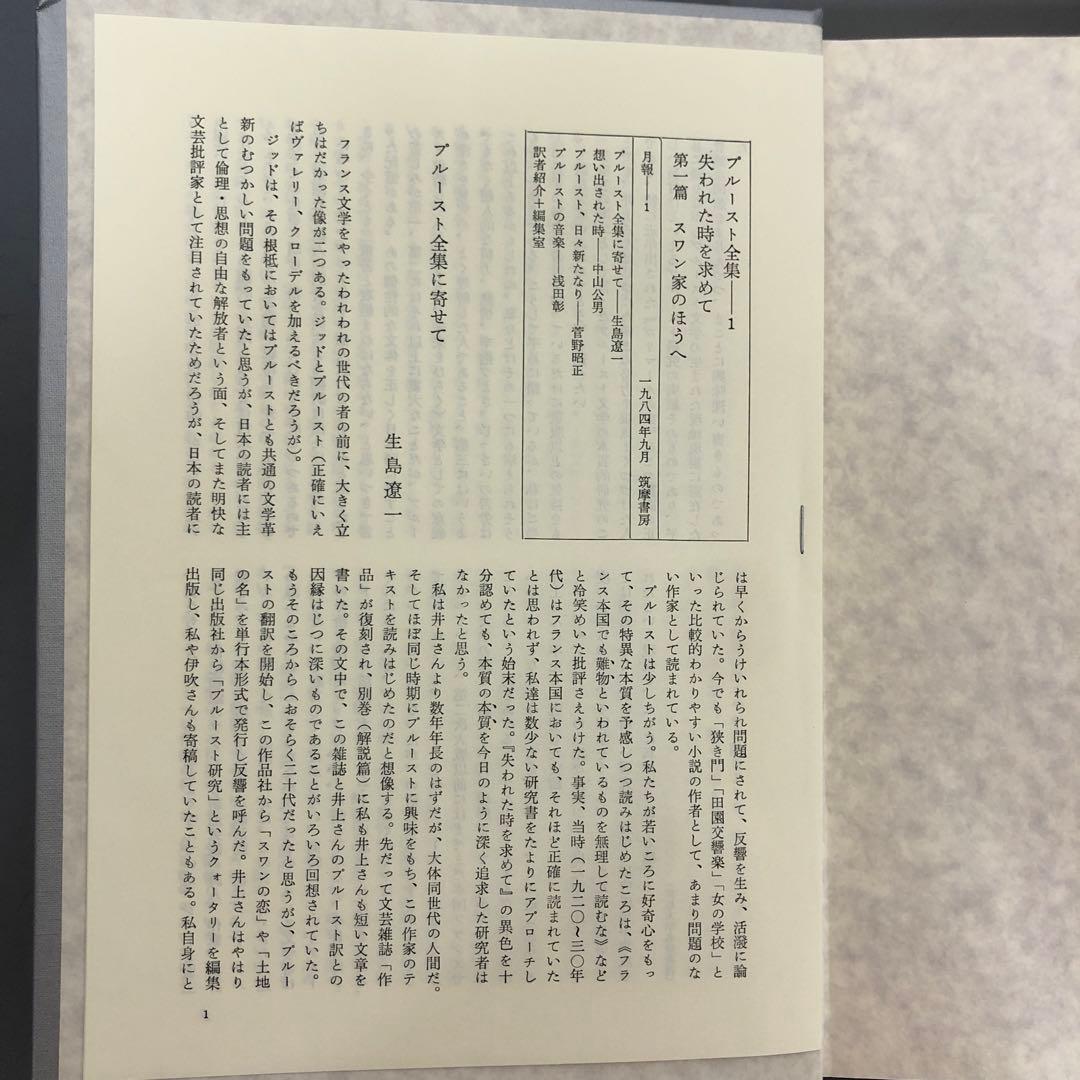 プルースト全集——1
失われた時を求めて
第一篇　スワン家のほうへ
月報——1　一九八四年九月　筑摩書房
プルースト全集に寄せて——生島遼一
想い出された時——中山公男
プルースト、日々新たなり——菅野昭正
プルーストの音楽——浅田彰
訳者紹介＋編集室
プルースト全集に寄せて
生島遼一
フランス文学をやったわれわれの世代の者の前に、大きく立
ちはだかった像が二つある。ジッドとプルースト（正確にいえ
ばヴァレリー、クローデルを加えるべきだろうが）。
ジッドは、その根柢においてはプルーストとも共通の文学革
新のむつかしい問題をもっていたと思うが、日本の読者には主
として倫理・思想の自由な解放者という面、そしてまた明快な
文芸批評家として注目されていたためだろうが、日本の読者に
は早くからうけいれられ問題にされて、反響を生み、活潑に論
じられていた。今でも「狭き門」「田園交響楽」「女の学校」と
いった比較的わかりやすい小説の作者として、あまり問題のな
い作家として読まれている。
プルーストは少しちがう。私たちが若いころに好奇心をもっ
て、その特異な本質を予感しつつ読みはじめたころは、《フラ
ンス本国でも難物といわれているものを無理して読むな》など
と冷笑めいた批評さえうけた。事実、当時（一九二〇〜三〇年
代）はフランス本国においても、それほど正確に読まれていた
とは思われず、私達は数少ない研究書をたよりにアプローチし
ていたという始末だった。『失われた時を求めて』の異色を十
分認めても、本質の本質を今日のように深く追求した研究者は
なかったと思う。
私は井上さんより数年年長のはずだが、大体同世代の人間だ。
そしてほぼ同じ時期にプルーストに興味をもち、この作家のテ
キストを読みはじめたのだと想像する。先だって文芸雑誌「作
品」が復刻され、別巻（解説篇）に私も井上さんも短い文章を
書いた。その文中で、この雑誌と井上さんのプルースト訳との
因縁はじつに深いものであることがいろいろ回想されていた。
もうそのころから（おそらく二十代だったと思うが）、プルー
ストの翻訳を開始し、この作品社から「スワンの恋」や「土地
の名」を単行本形式で発行し反響を呼んだ。井上さんはやはり
同じ出版社から「プルースト研究」というクォータリーを編集
出版し、私や伊吹さんも寄稿していたこともある。私自身にと
1